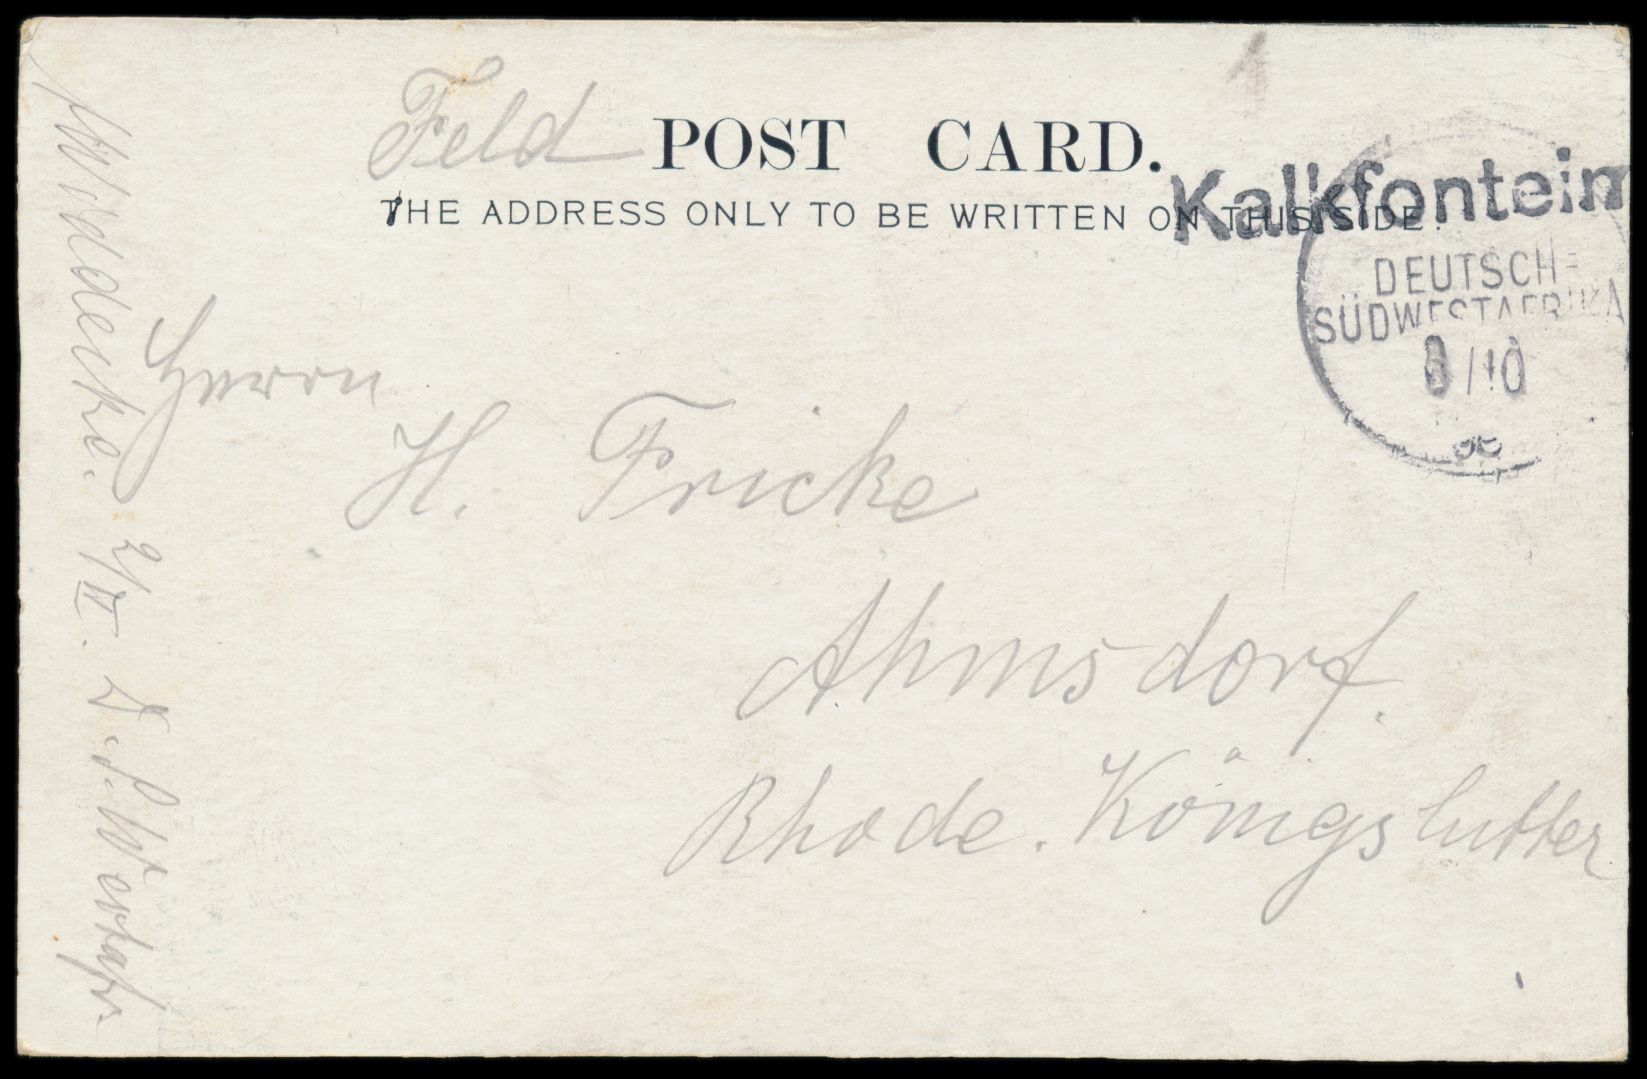 Feld POST CARD.
THE ADDRESS ONLY TO BE WRITTEN ON THIS SIDE.
1
Kalkfontein
DEUTSCH=
SÜDWESTAFRIKA
/10
Herrn
H. Fricke
Ahmsdorf.
Rhode. Königslutter
2/IV. D. S. W. Afr.